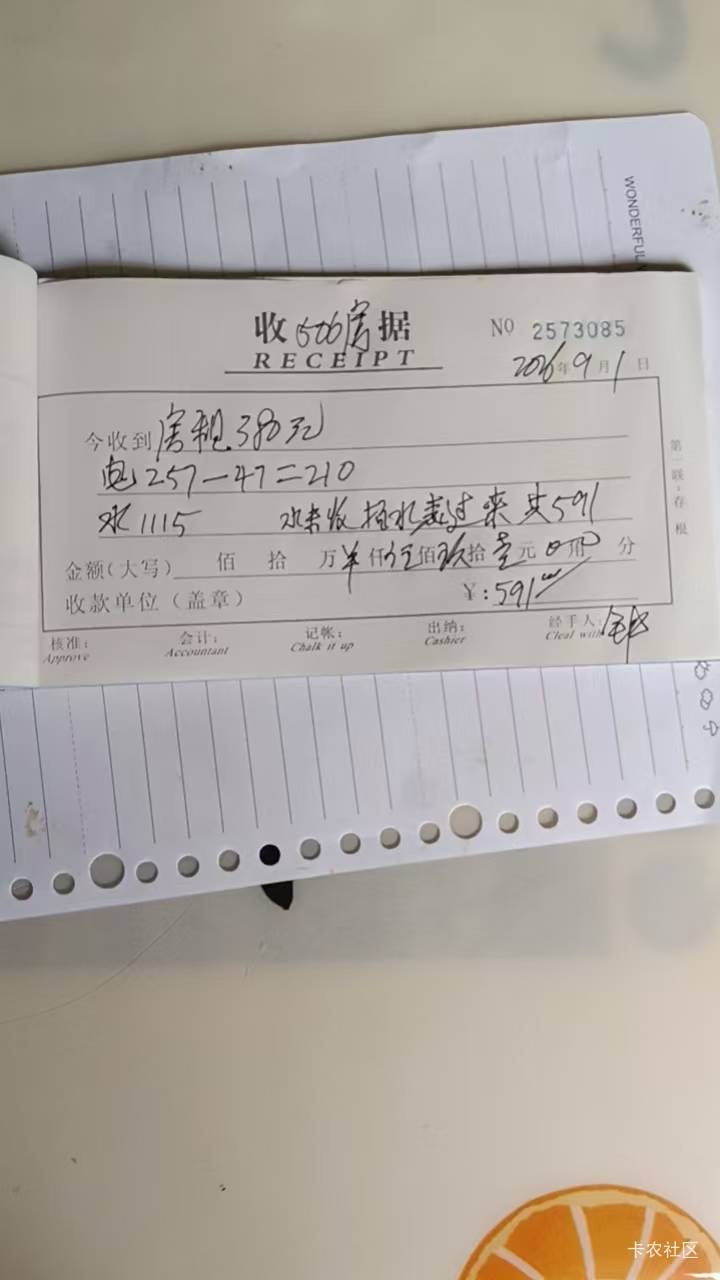 WONDERFUL
收506房据
RECEIPT
NO 2573085
2026年9月1日
今收到房租380元
电257-47=210
水1115 水未收 拯水表过来 共591
金额(大写) 佰 拾 万 仟伍佰玖拾壹元 角 分
收款单位(盖章) ¥:591
第一联:存根
核准: 会计: 记帐: 出纳: 经手人:
Approve Accountant Chalk it up Cashier Cleal with
卡农社区